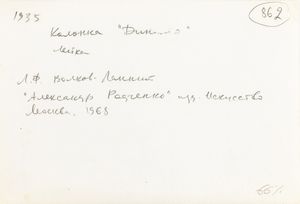 1935
862
Колонна "Динамо"
Лейка
Л.Ф. Волков-Ланнит
"Александр Родченко" изд. Искусство
Москва, 1968